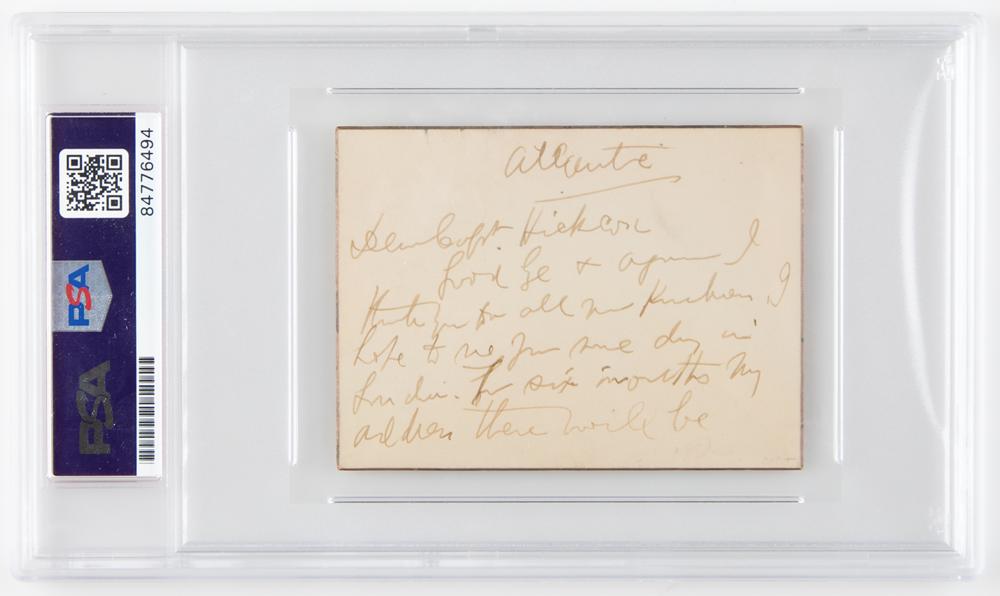 Atlantic
Dear Capt. Hickson
Good bye & again I
thank you for all your kindness I
hope to see you some day in
London. For six months my
address there will be
84776494
PSA
PSA